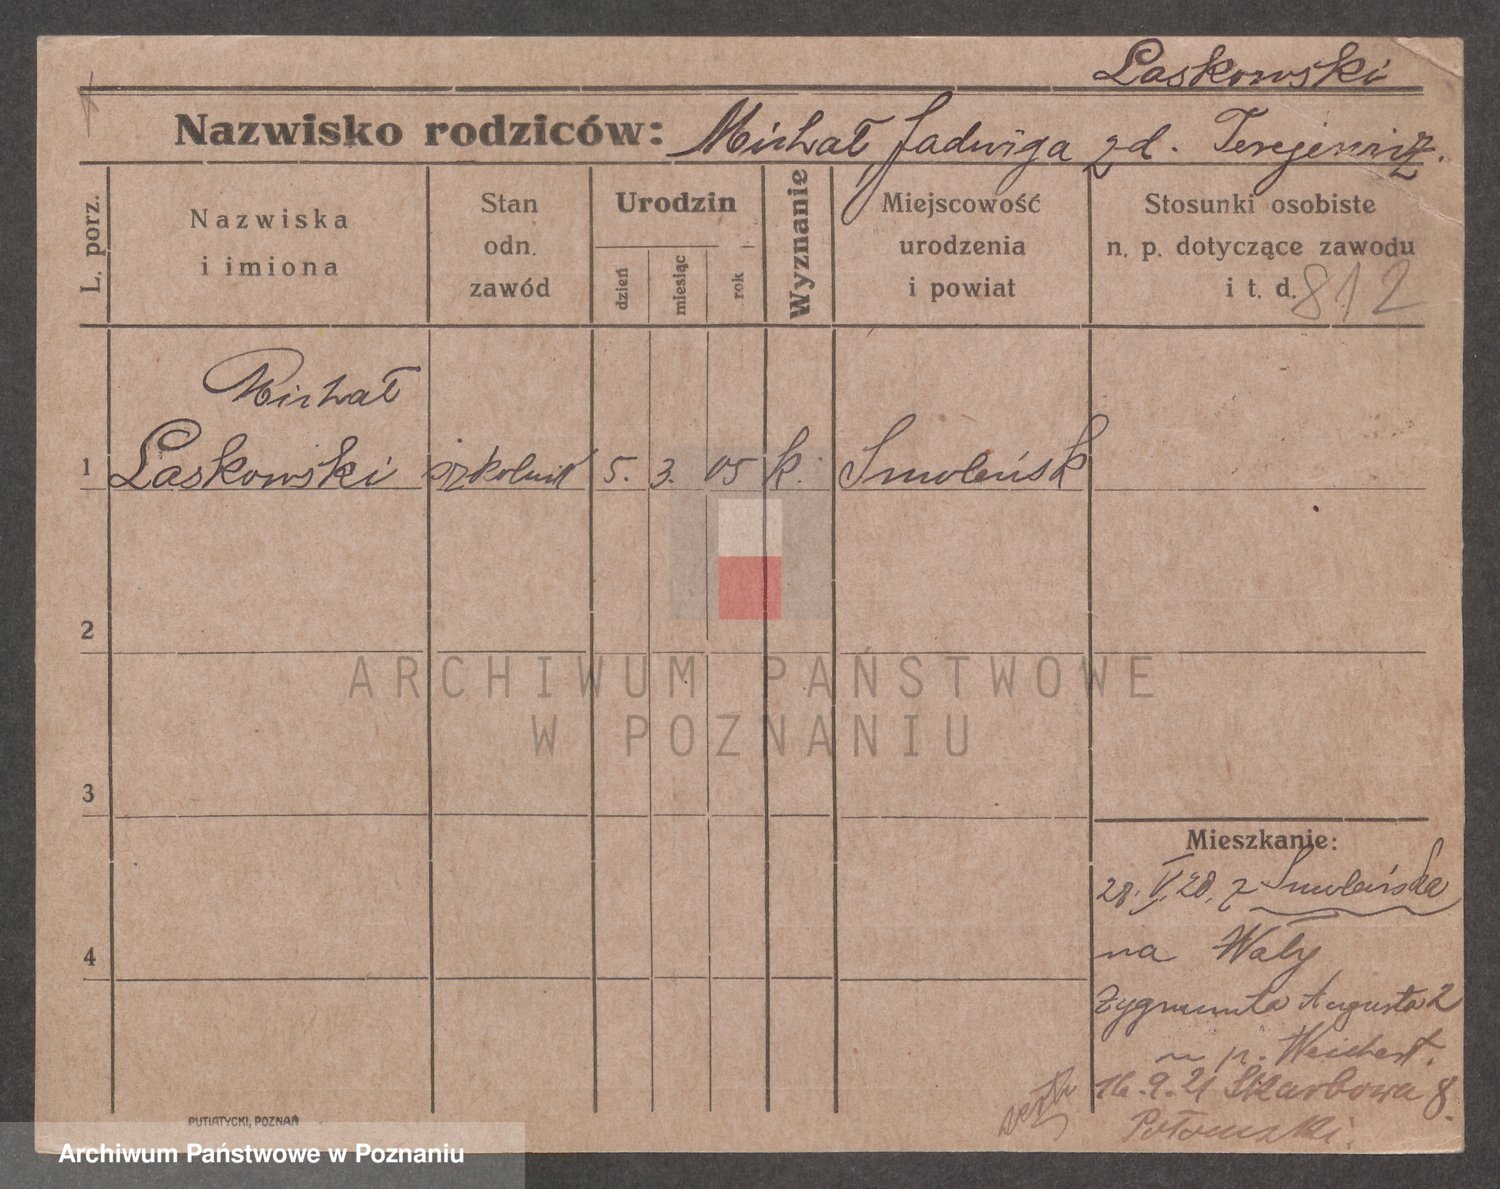 Laskowski
Nazwisko rodziców: Michał Jadwiga zd.
L. porz.
Nazwiska
i imiona
Stan
odn.
zawód
Urodzin
dzień
miesiąc
rok
Wyznanie
Miejscowość
urodzenia
i powiat
Stosunki osobiste
n. p. dotyczące zawodu
i t. d.
812
Michał
1 Laskowski szkolnik 5. 3. 05 k. Smoleńsk
2
3
4
Mieszkanie:
28. V. 20. z Smoleńska
na Wały
Zygmunta Augusta 2
u p. Weichert.
16.9.21 Skarbowa 8.
PUTIATYCKI, POZNAŃ
ARCHIWUM PAŃSTWOWE
W POZNANIU
Archiwum Państwowe w Poznaniu